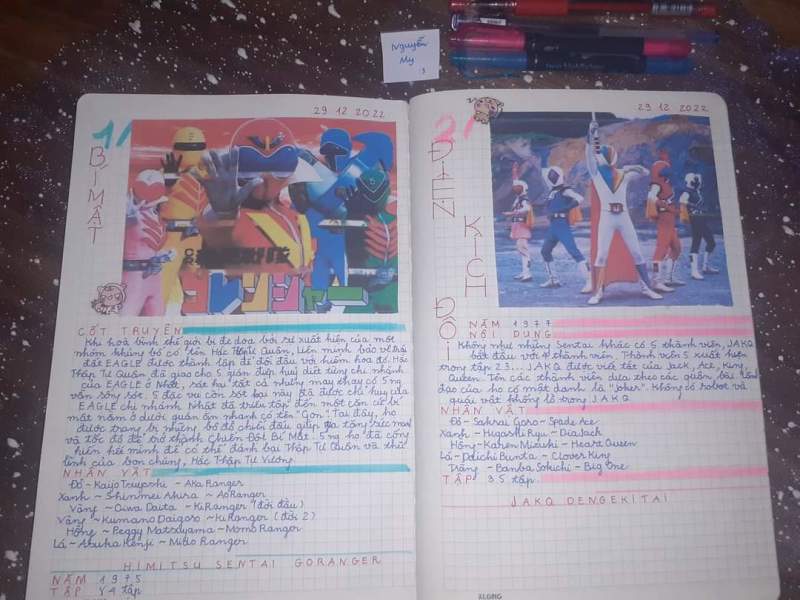 Nguyễn
My
:3
29 12 2022
1/
BÍ MẬT
ゴレンジャー
CỐT TRUYỆN
Khi hoà bình thế giới bị đe doạ bởi sự xuất hiện của một
nhóm khủng bố có tên Hắc Thập Tự Quân, liên minh bảo vệ trái
đất EAGLE được thành lập để đối đầu với hiểm hoạ đó. Hắc
Thập Tự Quân đã giao cho 5 quán điệp huỷ diệt từng chi nhánh
của EAGLE ở Nhật, sát hại tất cả nhưng may thay có 5 ng
vẫn sống sót. 5 đặc vụ còn sót lại này đã được chỉ huy của
EAGLE chi nhánh Nhật đã triệu tập đến một căn cứ bí
mật nằm ở dưới quán ăn nhanh có tên "Gon". Tại đây, họ
được trang bị những bộ đồ chiến đấu giúp gia tăng sức mạnh
và tốc độ để trở thành Chiến Đội Bí Mật. 5 ng họ đã cống
hiến hết mình để có thể đánh bại Thập Tự Quân và thủ
lĩnh của bọn chúng, Hắc Thập Tự Vương.
NHÂN VẬT
Đỏ ~ Kaijo Tsuyoshi - Aka Ranger
Xanh ~ Shinmei Akira ~ AoRanger
Vàng ~ Oiwa Daita - KiRanger (đời đầu)
Vàng ~ Kumano Daigoro ~ KiRanger (đời 2)
Hồng ~ Peggy Matsuyama - Momo Ranger
Lá ~ Asuka Kenji ~ Mido Ranger
HIMITSU SENTAI GORANGER
NĂM 1975
TẬP 84 tập
29 12 2022
2/
ĐIỆN KÍCH ĐỘI
NĂM 1977
NỘI DUNG
Không như những Sentai khác có 5 thành viên, JAKQ
bắt đầu với 4 thành viên. Thành viên 5 xuất hiện
trong tập 23... JAKQ được viết tắt của Jack, Ace, King,
Queen. Tên các thành viên dựa theo các quân bài. Lãnh
đạo của họ có mật danh là "Joker". Không có robot và
quái vật khổng lồ trong JAKQ
NHÂN VẬT
Đỏ - Sakurai Goro - Spade Ace
Xanh - Higashi Ryu - Dia Jack
Hồng - Karen Mizuki - Heart Queen
Lá - Daichi Bunta - Clover King
Trắng - Banba Sokichi - Big One
TẬP 35 tập
JAKQ DENGEKITAI
KLONG